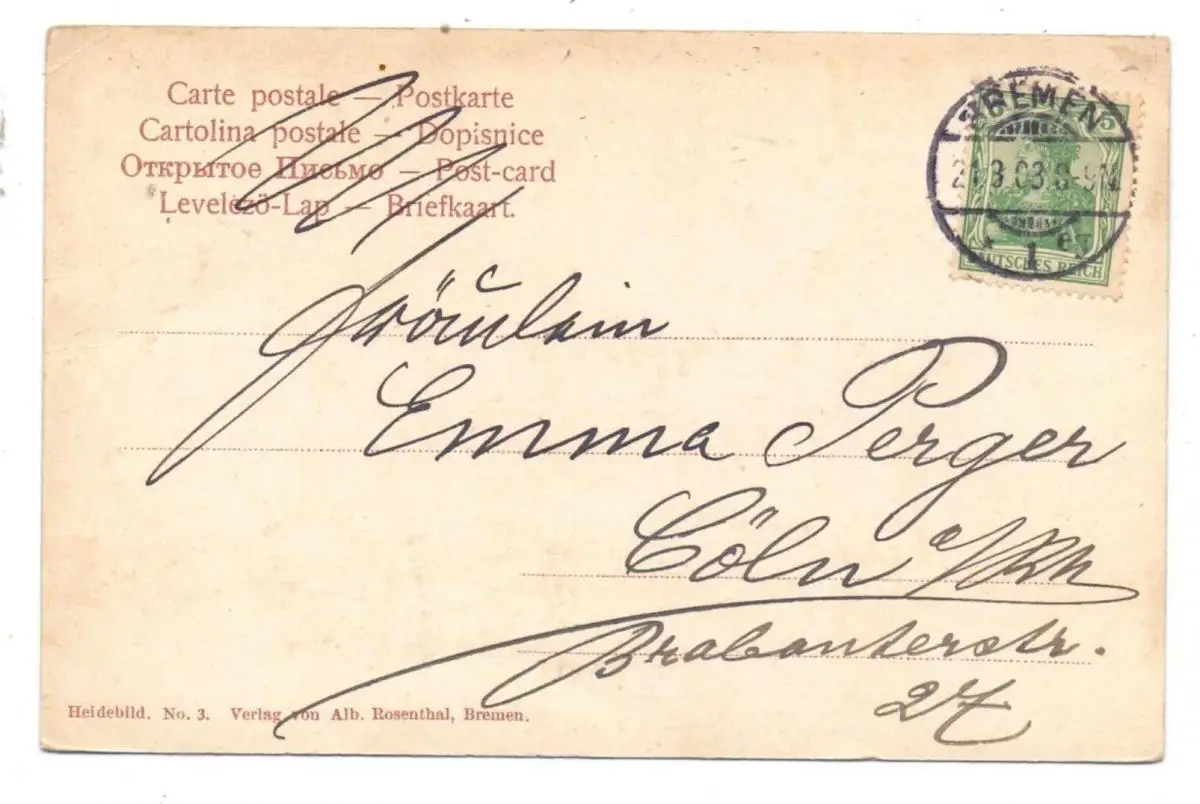 Carte postale — Postkarte
Cartolina postale — Dopisnice
Открытое Письмо — Post-card
Levelèzö-Lap — Briefkaart.
BREMEN
3.03.8-9N
1
5
DEUTSCHES REICH
Fräulein
Emma Perger
Cöln a/Rh
Brabanterstr.
27
Heidebild. No. 3. Verlag von Alb. Rosenthal, Bremen.